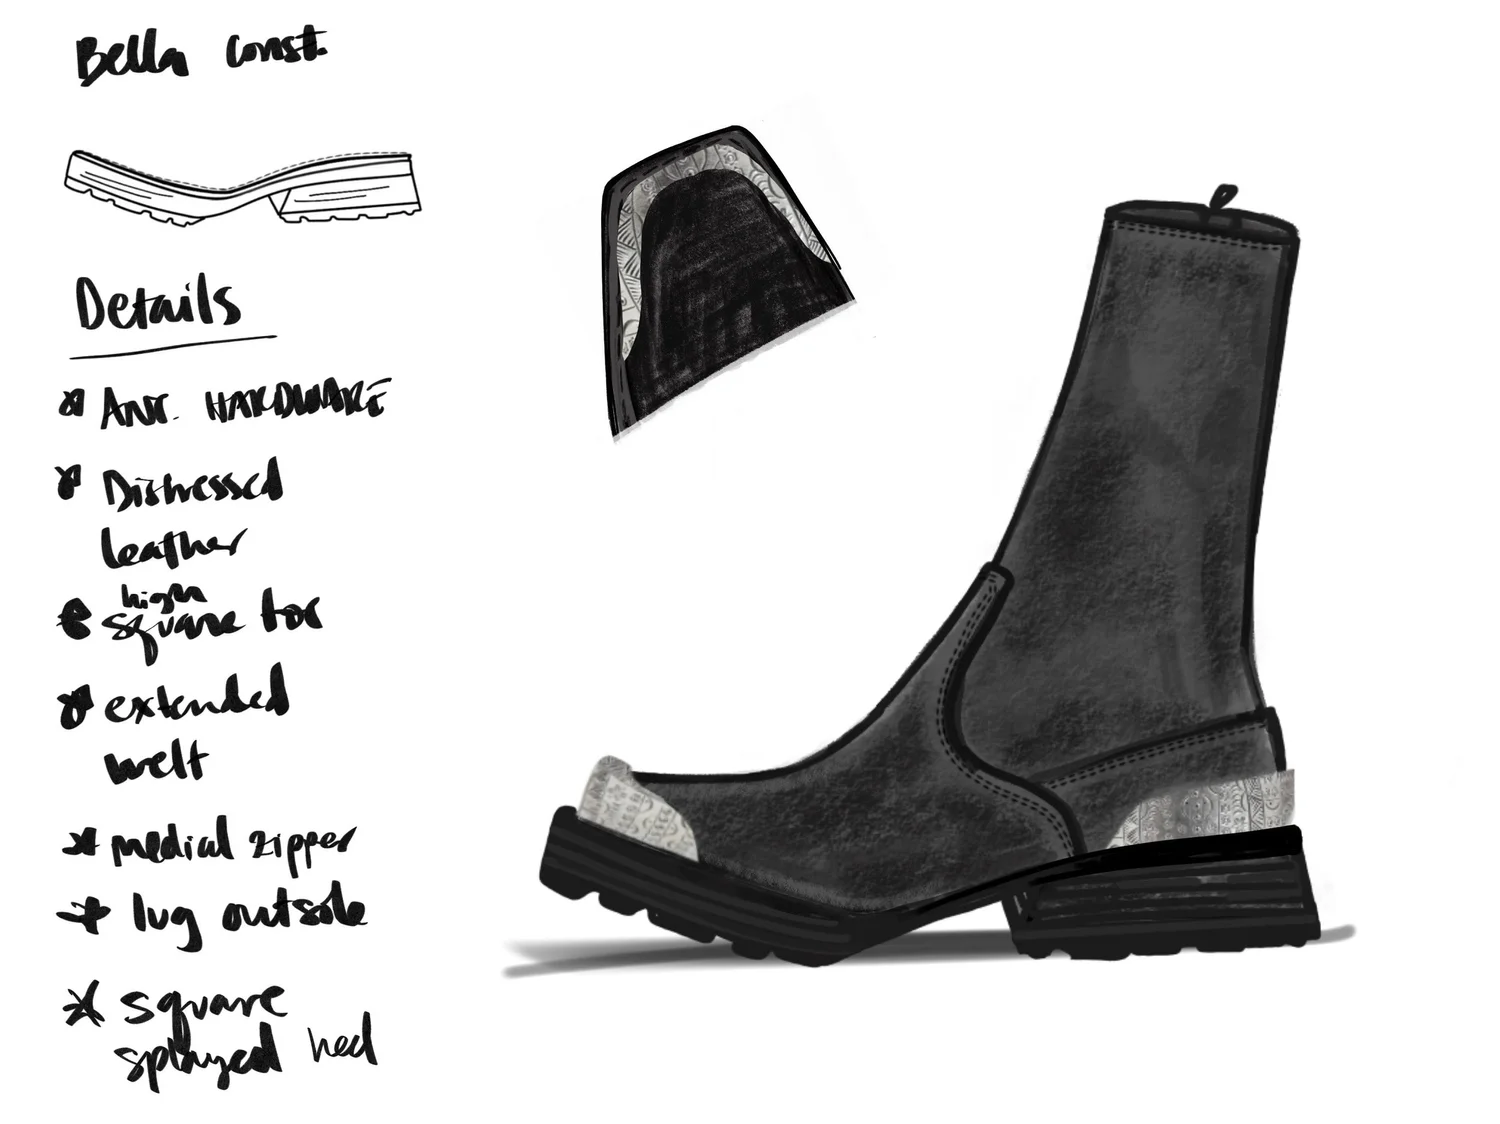 Bella Const.
Details
* ANT. HARDWARE
* Distressed
leather
high
* square toe
* extended
welt
* medial zipper
* lug outsole
* square
splayed heel